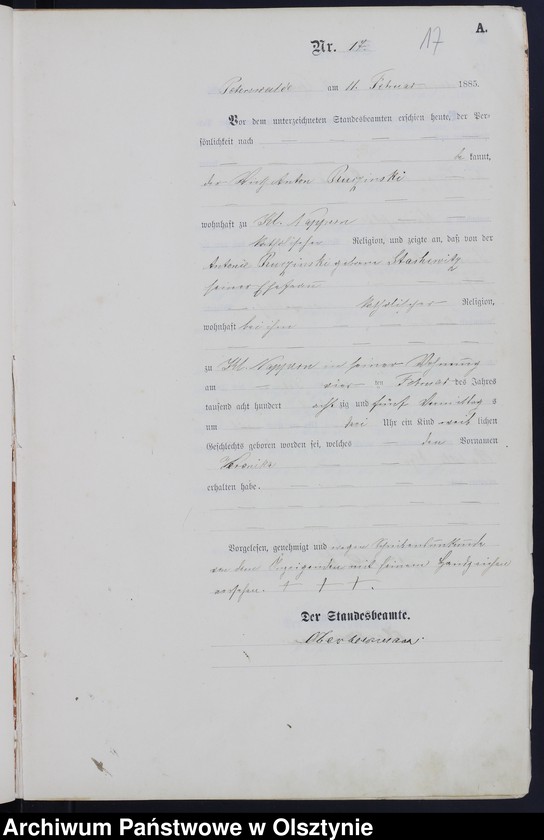 A.
Nr. 17
17
am 11. Februar 1885.
Vor dem unterzeichneten Standesbeamten erschien heute, der Per-
sönlichkeit nach
be kannt,
der Anton
wohnhaft zu Kl. Nappern
katholischer Religion, und zeigte an, daß von der
geborene
seiner Ehefrau
katholischer Religion,
wohnhaft bei ihm
zu Kl. Nappern in seiner Wohnung
am vier ten Februar des Jahres
tausend acht hundert acht zig und fünf Vormittag s
um drei Uhr ein Kind weib lichen
Geschlechts geboren worden sei, welches den Vornamen
erhalten habe.
Vorgelesen, genehmigt und wegen Schreibensunkunde
von dem Anzeigenden mit seinem Handzeichen
versehen. + + +.
Der Standesbeamte.
Archiwum Państwowe w Olsztynie